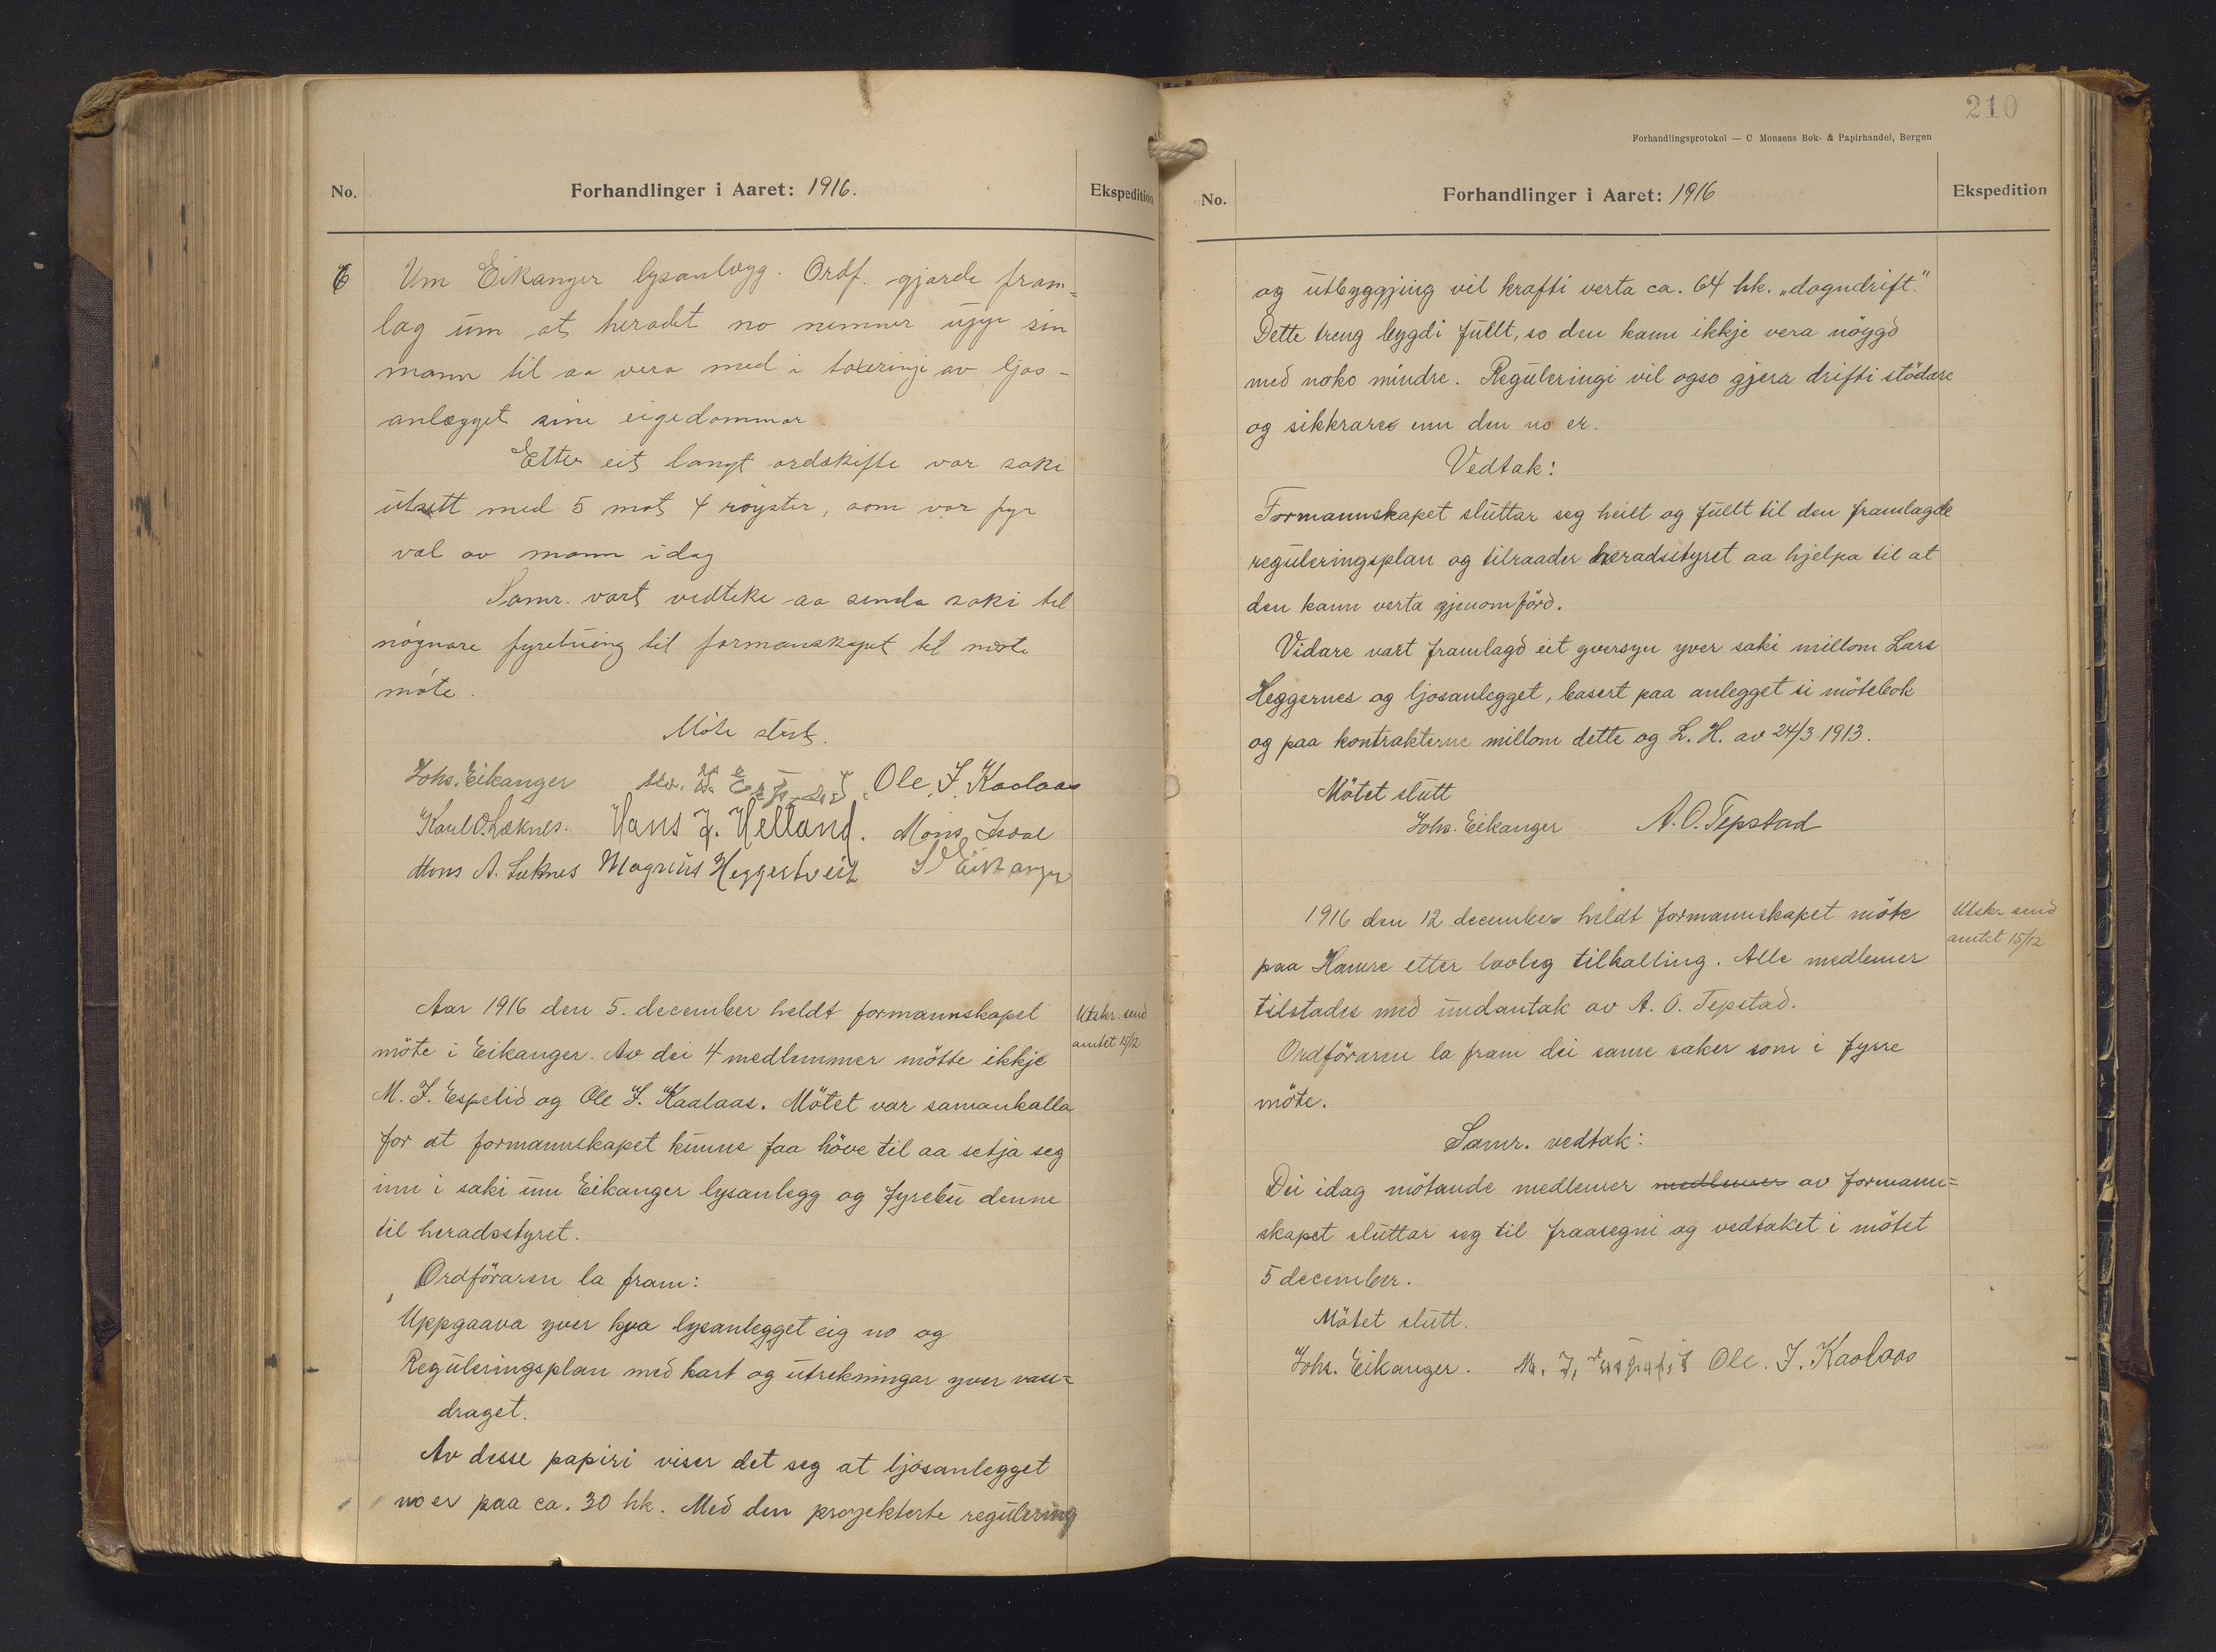 No.
Forhandlinger i Aaret: 1916.
Ekspedition
6
Um Eikanger lysanlegg. Ordf. gjorde fram=
lag um at heradet no nemner uppe sin
mann til aa vera med i takseringi av ljos-
anlægget sine eigedommar.
Etter eit langt ordskifte var saki
utsett med 5 mot 4 røyster, som var fyr
val av mann idag
Samr. vart vedteke aa senda saki til
nøgnare fyrebuing til formanskapet til næste
møte.
Møte slut.
Johs. Eikanger Ole J. Kaalaas
Karl O. Læknes. Hans J. Helland. Mons Isdal
Mons A. Leknes Magnus Heggertveit Eikanger
Aar 1916 den 5. december heldt formannskapet
möte i Eikanger. Av dei 4 medlemmer mötte ikkje
M. J. Espelid og Ole J. Kaalaas. Mötet var samankalla
for at formannskapet kunne faa höve til aa setja seg
inn i saki um Eikanger lysanlegg og fyrebu denne
til heradsstyret.
Utskr. send
amtet 15/12
Ordföraren la fram:
Uppgaava yver kva lysanlegget eig no og
Reguleringsplan med kart og utrekningar yver vass=
draget.
Av desse papiri viser det seg at ljosanlegget
no er paa ca. 30 hk. Med den projekterte regulering
210
Forhandlingsprotokol — C. Monsens Bok- & Papirhandel, Bergen
No.
Forhandlinger i Aaret: 1916
Ekspedition
og utbyggjing vil krafti verta ca. 64 hk. „dogndrift."
Dette treng bygdi fullt, so den kann ikkje vera nöggd
med noko mindre. Reguleringi vil ogso gjera drifti stödare
og sikkrare enn den no er.
Vedtak:
Formannskapet sluttar seg heilt og fullt til den framlagde
reguleringsplan og tilraader heradsstyret aa hjelpa til at
den kann verta gjenomförd.
Vidare vart framlagd eit yversyn yver saki millom Lars
Heggernes og ljosanlegget, basert paa anlegget si mötebok
og paa kontrakterne millom dette og L. H. av 24/3 1913.
Mötet slutt
Johs. Eikanger A. O. Tepstad
1916 den 12 december heldt formannskapet möte
paa Hamre etter lovleg tilkalling. Alle medlemer
tilstades med undantak av A. O. Tepstad.
Utskr send
amtet 15/12
Ordföraren la fram dei same saker som i fyrre
möte.
Samr. vedtak:
Dei idag mötande medlemer medlemer av formann=
skapet sluttar seg til fraasegni og vedtaket i mötet
5 december.
Mötet slutt.
Johs. Eikanger. M. J. Espelid Ole. J. Kaalaas